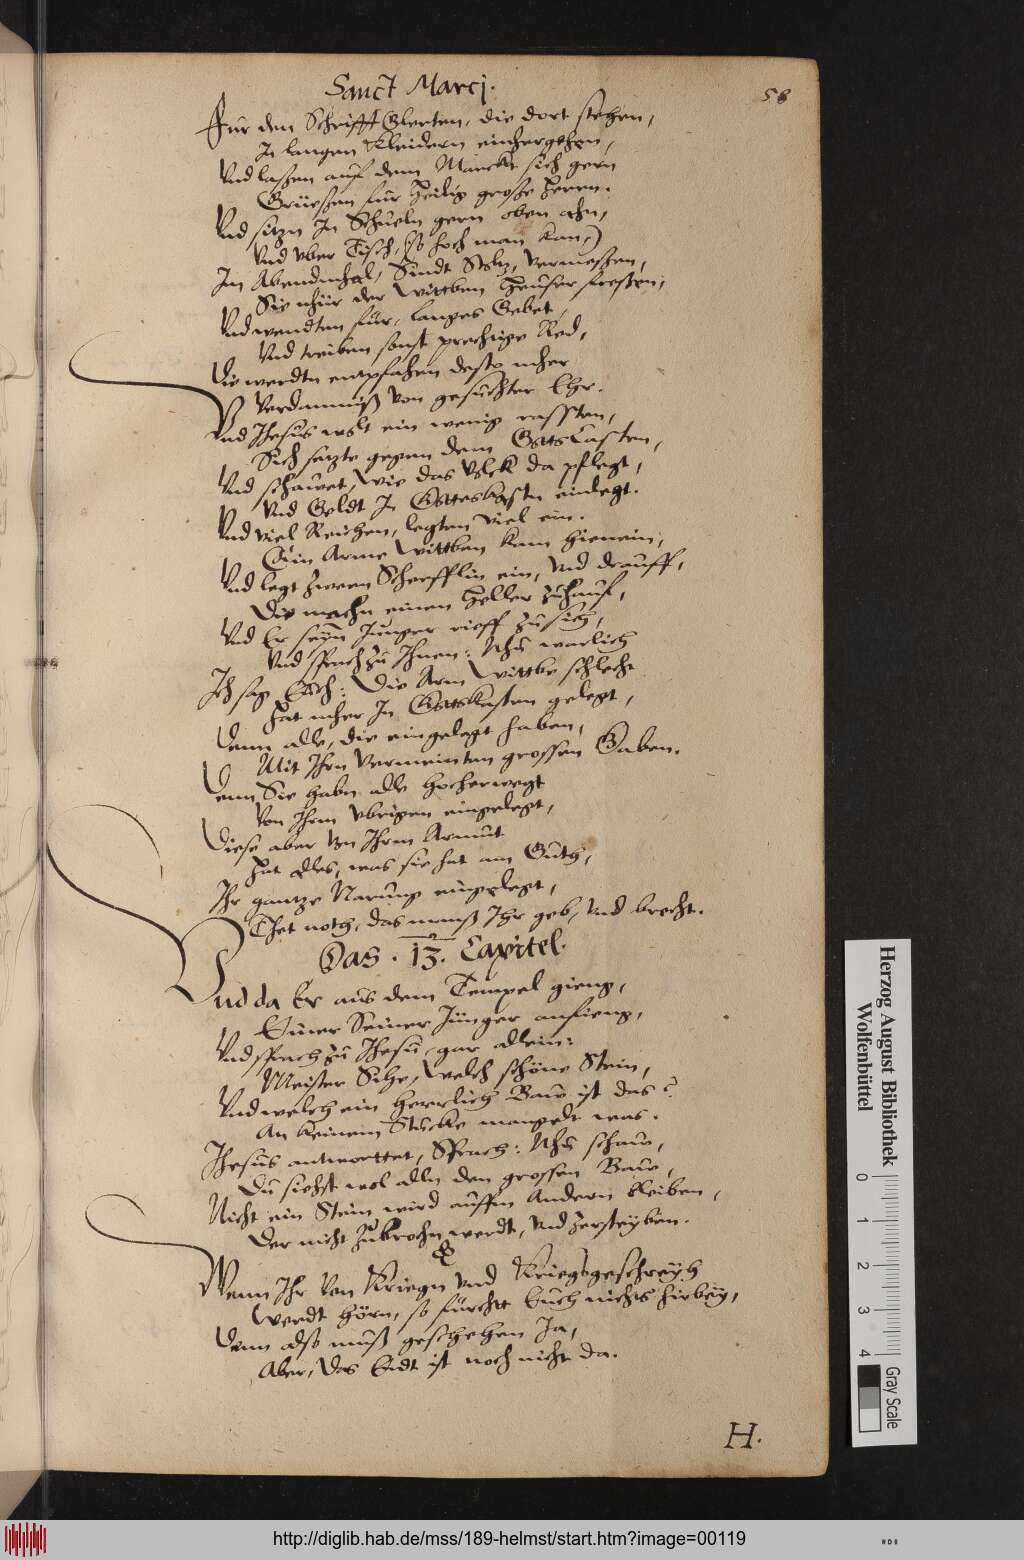 Sanct Marcj.
58
Für den Schrifft Glerten, die dort stehen,
In langen Kleidern einhergehen,
Vnd laßen auf dem Marckt sich gern
Grüeßen für heilig große Herrn.
Vnd sitzn In Schueln gern oben ahn,
Vnd vber Tisch, (so hoch man kan,)
Im Abendmhal, Sindt Stoltz, vermeßen,
Sie nhür der Wittben Heuser freßen,
Vnd wendten für, langes Gebet,
Vnd treiben sonst prechtige Red,
Die werdtn empfahen desto mher
Verdamniß von gesuchter Ehr.
Vnd Jhesus wolt ein wenig rassten,
Sich setzte gegen dem GottsCasten,
Vnd schawet, Wie das Volck da pflegt,
Vnd Geldt In Gotteskastn einlegt.
Vnd viel Reichen, legten viel ein.
Ein Arme Wittben kam hienein,
Vnd legt zween Scherfflin ein, vnd drauff,
Die machn einen Heller zuhauf,
Vnd Er seyn Junger rieff zu sich,
Vnd sprach zu Ihnen: Nhu warlich
Ich sag Euch: Die Arm Wittbe schlecht
Hat mher In Gottskasten gelegt,
Denn alle, die eingelegt haben,
Mit Ihrn vermeinten grossen Gaben.
Denn Sie habn alle hocherwegt
Von Ihrm vbrigen eingelegt,
Diese aber von Ihrm Armut
Hat alles, was sie hat am Guth,
Ihr gantze Narung eingelegt,
Thet noth, das manß Ihr geb, vnd brecht.
Das . 13. Capitel.
Vnd da Er aus dem Tempel gieng,
Einer Seiner Jünger anfieng,
Vnd sprach zu Jhesu, gar allein:
Meister Sihe, Welch schöne Stein,
Vnd welch ein herrlich Baw ist das?
An keinem Stucke mangelt was.
Jhesus antworttet, Sprach: Nhu schaw,
Du siehst wol alln den grossen Baw,
Nicht ein Stein wird auffm Andern bleiben,
Der nicht zubrochn werdt, vnd zerstryben.
Wenn Ihr von Kriegn vnd Kriegsgeschreyh
Werdt hörn, so fürcht Euch nichts hirbey,
Denn also muß geschehen Ja,
Aber, Das Endt ist noch nicht da.
H.
Herzog August Bibliothek
Wolfenbüttel
0 1 2 3 4
Gray Scale
http://diglib.hab.de/mss/189-helmst/start.htm?image=00119